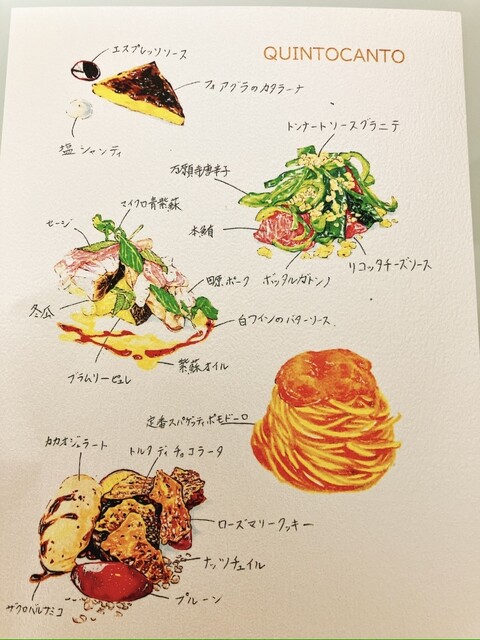 QUINTOCANTO
エスプレッソソース
フォアグラのカタラーナ
塩シャンティ
トンナートソースグラニテ
万願寺唐辛子
本鮪
ボッタルガトンノ
リコッタチーズソース
マイクロ青紫蘇
セージ
田原ポーク
冬瓜
白ワインのバターソース
プラムリーピュレ
紫蘇オイル
定番スパゲッティポモドーロ
カカオジェラート
トルタディチョコラータ
ローズマリークッキー
ナッツチュイル
プルーン
ザクロバルサミコ